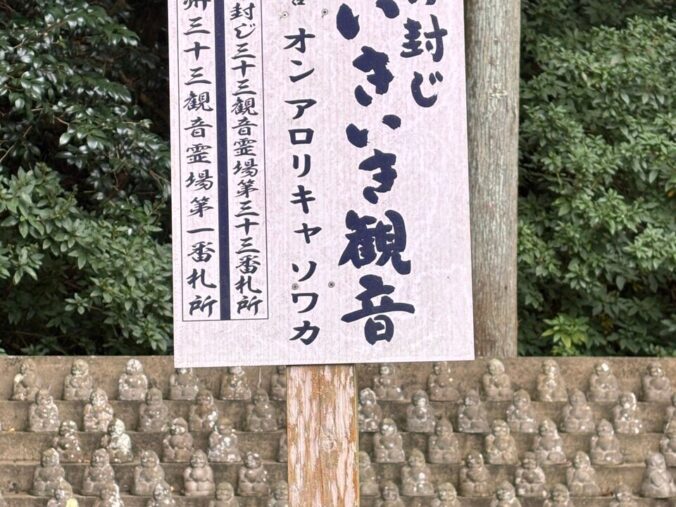 封じ
いきいき観音
オン アロリキャ ソワカ
封じ三十三観音霊場第三十三番札所
三十三観音霊場第一番札所